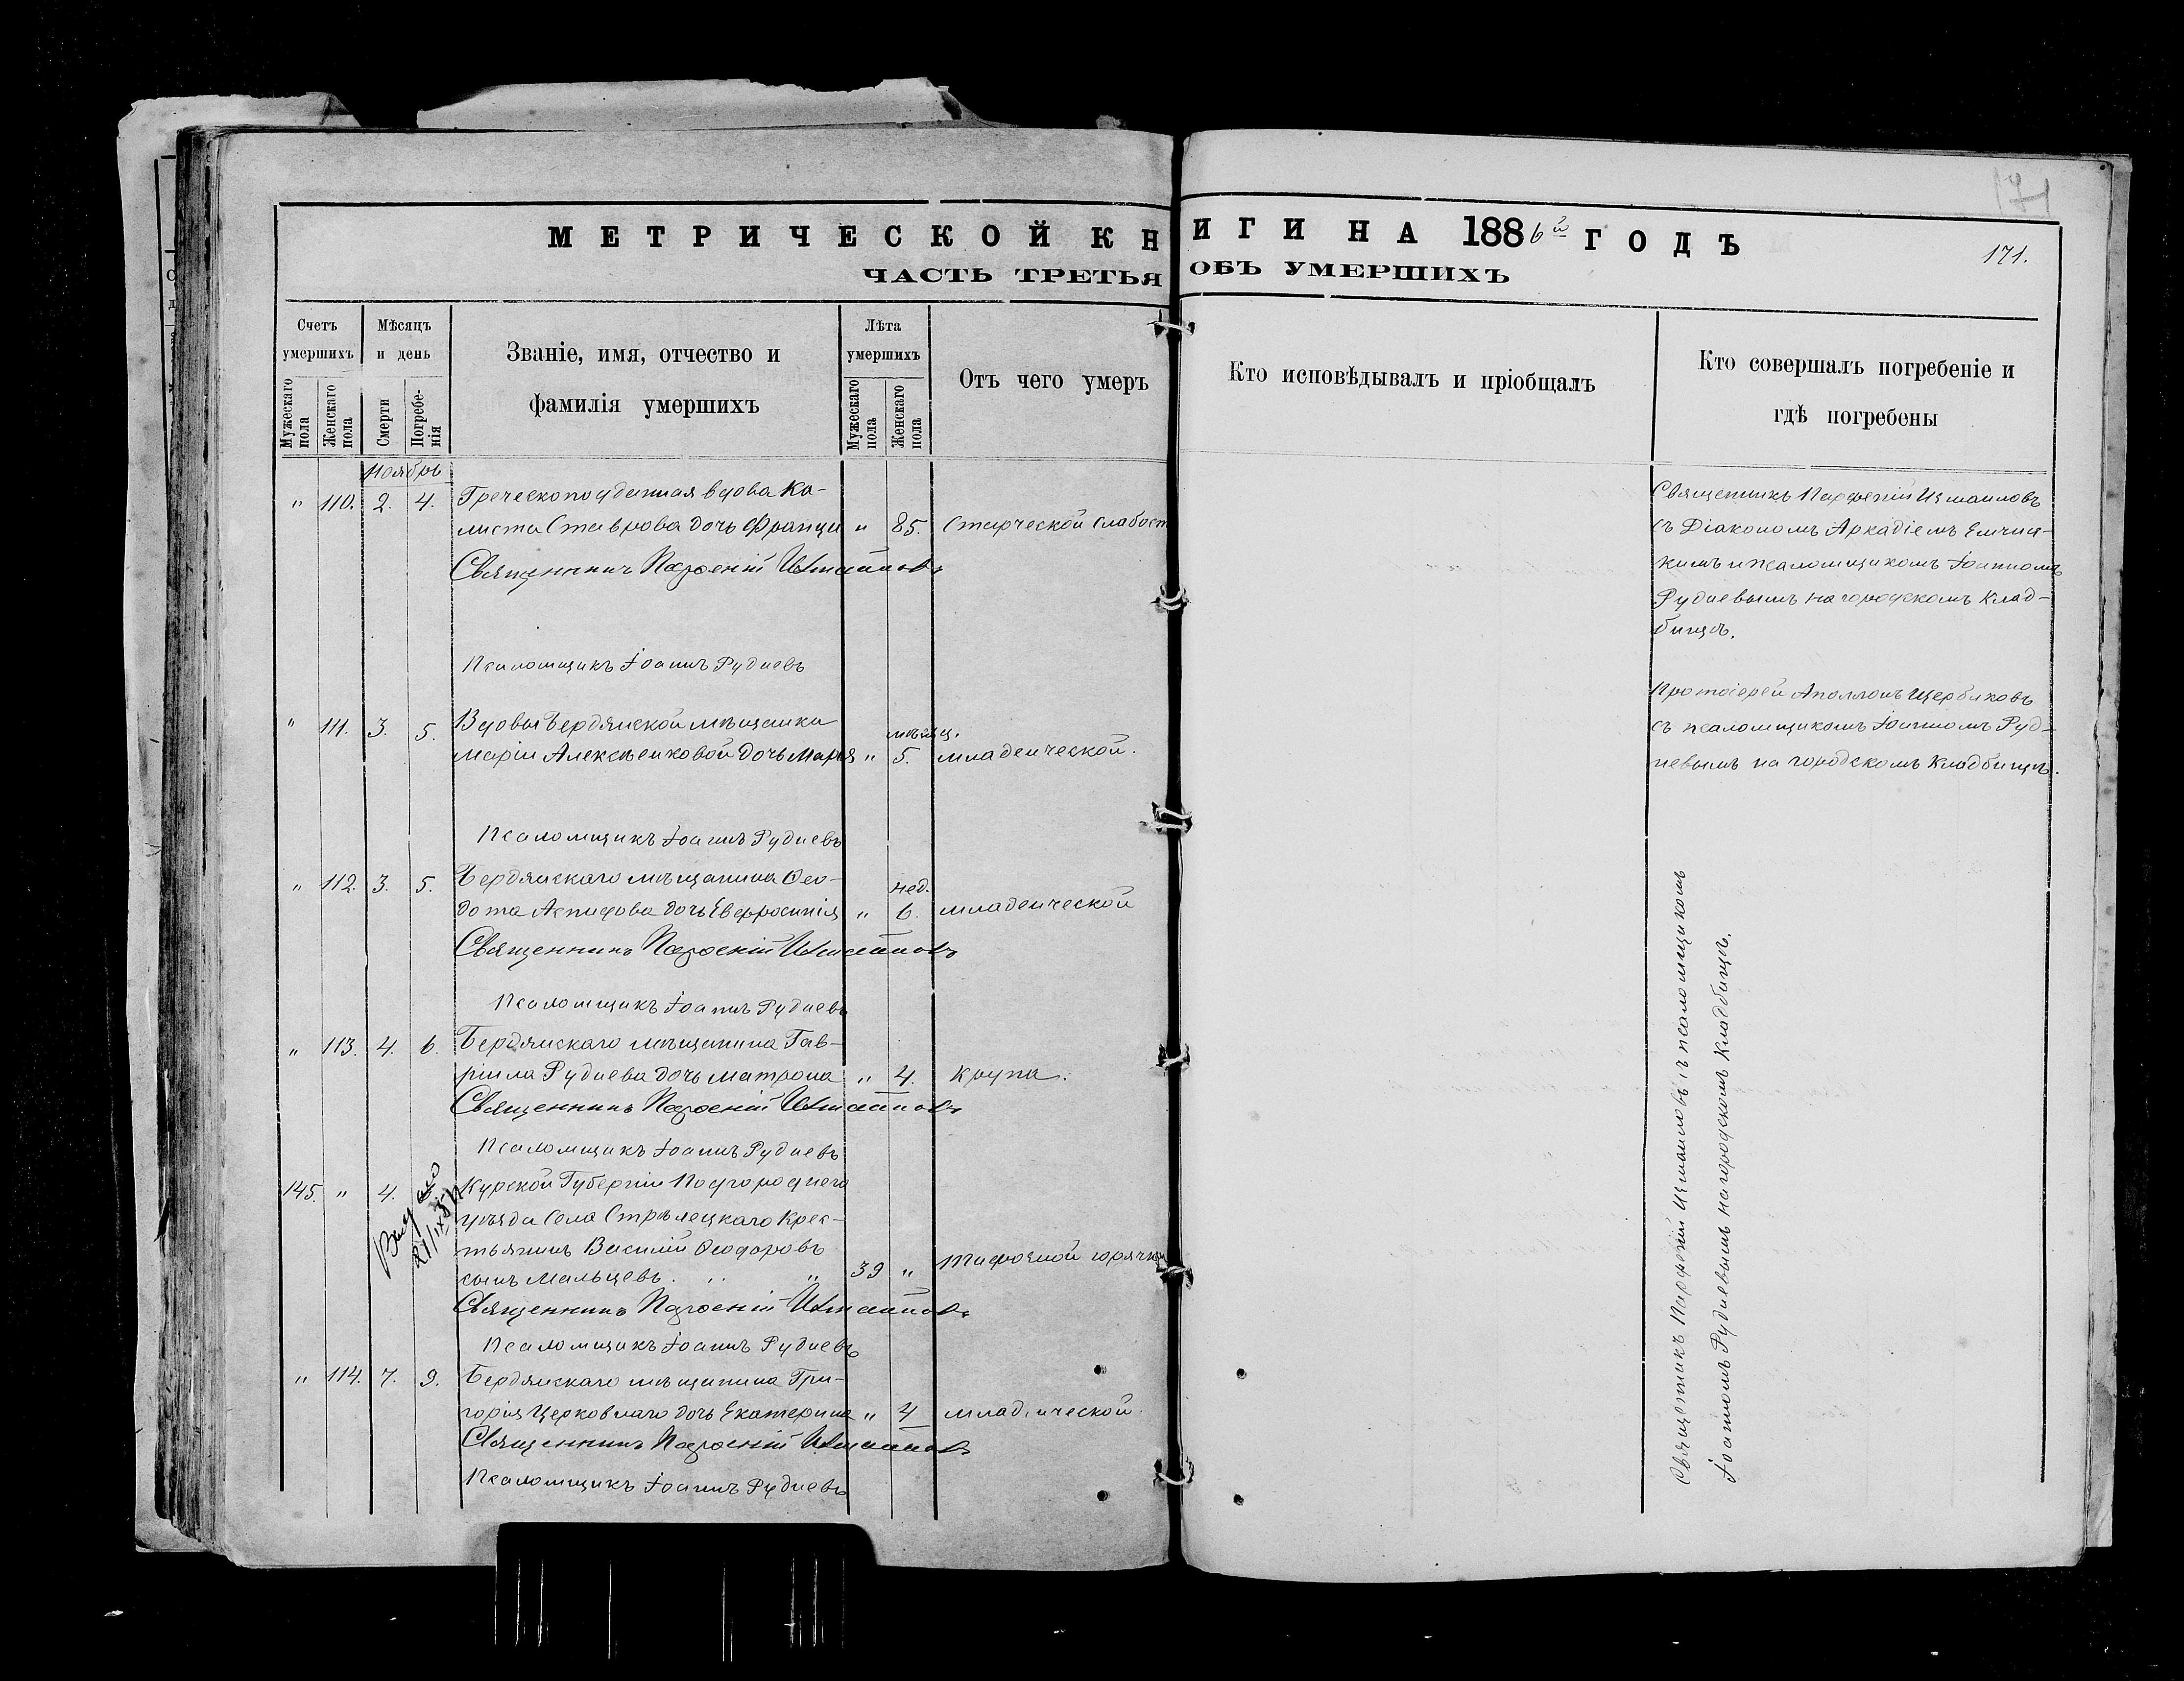 МЕТРИЧЕСКОЙ КНИГИ НА 1886й ГОДЪ
171
171.
ЧАСТЬ ТРЕТЬЯ ОБЪ УМЕРШИХЪ
Счетъ умершихъ
Мужескаго пола
Женскаго пола
Мѣсяцъ и день
Смерти
Погребенія
Званіе, имя, отчество и
фамилія умершихъ
Лѣта умершихъ
Мужескаго пола
Женскаго пола
Отъ чего умеръ
Кто исповѣдывалъ и пріобщалъ
Кто совершалъ погребеніе и
гдѣ погребены
Ноябрь
" 110. 2. 4. Греческоподданная вдова Ка-
листа Ставрова дочь Франци " 85. старческой слабост
Священникъ Парфеній Измаиловъ
Псаломщикъ Іоаннъ Рудневъ
Священникъ Парфеній Измаиловъ
съ Діакономъ Аркадіемъ
кимъ и псаломщикомъ Іоанномъ
Рудневымъ на городскомъ клад-
бищѣ.
" 111. 3. 5. Вдовы Бердянской мѣщанки
мѣсяц.
Маріи Алексѣенковой дочь Марія " 5. младенческой.
Псаломщикъ Іоаннъ Рудневъ
Протоіерей Аполлонъ Щербаковъ
съ псаломщикомъ Іоанномъ Руд-
невымъ на городскомъ кладбищѣ.
" 112. 3. 5. Бердянскаго мѣщанина Ѳео-
нед.
дота дочь Евфросинія " 6. младенческой
Священникъ Парфеній Измаиловъ
Псаломщикъ Іоаннъ Рудневъ
" 113. 4. 6. Бердянскаго мѣщанина Гав-
ріила Руднева дочь Матрона " 4. крупа.
Священникъ Парфеній Измаиловъ
Псаломщикъ Іоаннъ Рудневъ
145. " 4. Курской Губерніи
уѣзда Села Стрѣлецкаго Крес-
тьянинъ Василій Ѳеодоровъ
сынъ Мальцевъ. " 39 " тифозной горячки
Священникъ Парфеній Измаиловъ
Псаломщикъ Іоаннъ Рудневъ
" 114. 7. 9. Бердянскаго мѣщанина Гри-
горія Церковнаго дочь Екатерина " 4 младенческой.
Священникъ Парфеній Измаиловъ
Псаломщикъ Іоаннъ Рудневъ
Священникъ Парфеній Измаиловъ съ псаломщикомъ
Іоанномъ Рудневымъ на городскомъ кладбищѣ.